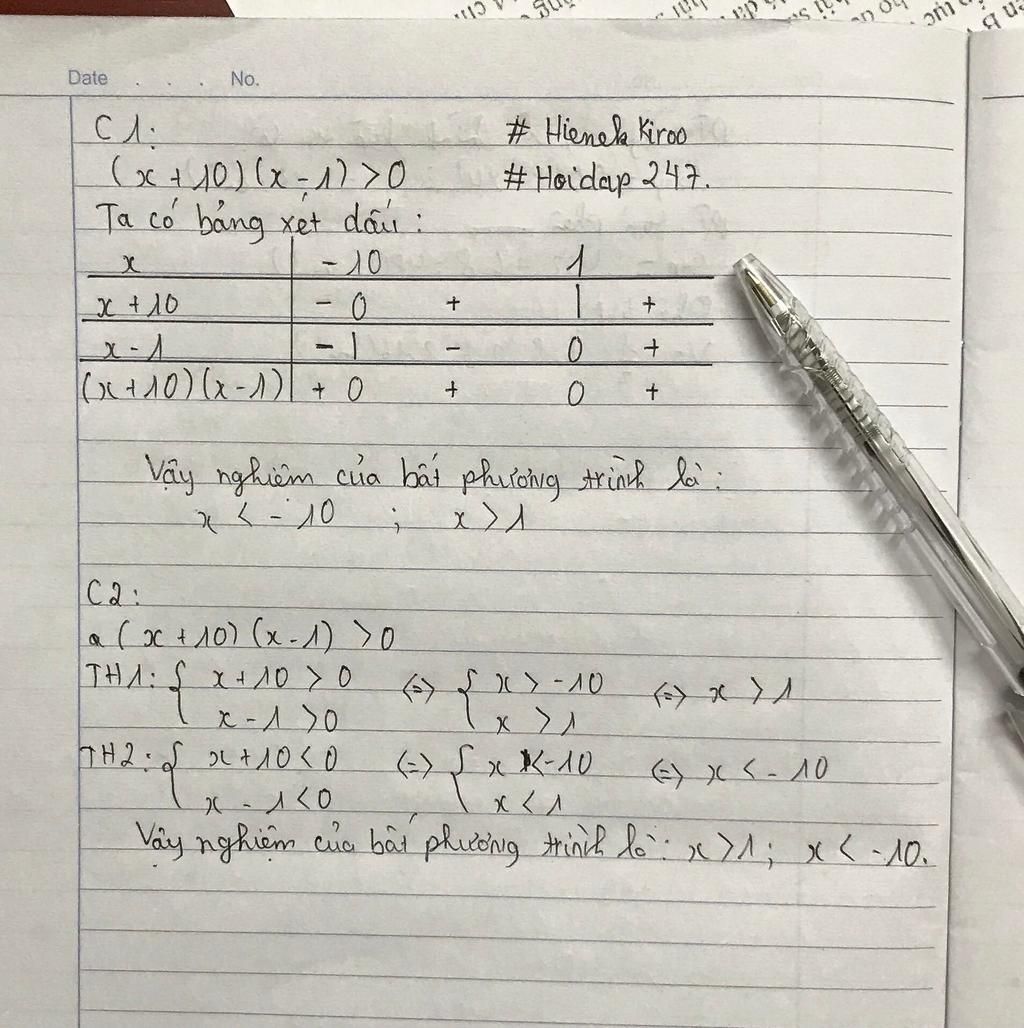 Date . . . No.
C1: # Hienek Kiroo
(x + 10)(x - 1) > 0 # Hoidap 247.
Ta có bảng xét dấu:
x | - 10 1
x + 10 | - 0 + | +
x - 1 | - | - 0 +
(x + 10)(x - 1) | + 0 + 0 +
Vậy nghiệm của bất phương trình là:
x < - 10 ; x > 1
C2:
a (x + 10)(x - 1) > 0
TH1: { x + 10 > 0 <=> { x > -10 <=> x > 1
x - 1 > 0 x > 1
TH2: { x + 10 < 0 <=> { x < -10 <=> x < - 10
x - 1 < 0 x < 1
Vậy nghiệm của bất phương trình là: x > 1; x < -10.